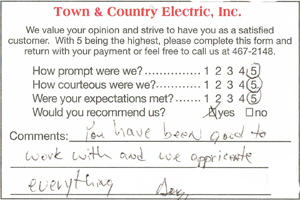 Town & Country Electric, Inc.
We value your opinion and strive to have you as a satisfied
customer. With 5 being the highest, please complete this form and
return with your payment or feel free to call us at 467-2148.
How prompt were we?.............. 1 2 3 4 5
How courteous were we?......... 1 2 3 4 5
Were your expectations met?.. 1 2 3 4 5
Would you recommend us? yes no
Comments: You have been good to
work with and we appriciate
everything